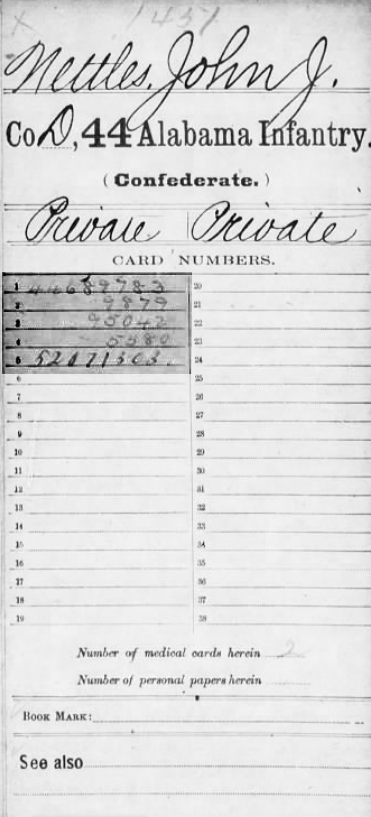 1437
Nettles, John J.
Co D, 44 Alabama Infantry.
(Confederate.)
Private Private
CARD NUMBERS.
1 44689783 20
2 9879 21
3 95042 22
4 5580 23
5 52071363. 24
6 25
7 26
8 27
9 28
10 29
11 30
12 31
13 32
14 33
15 34
16 35
17 36
18 37
19 38
Number of medical cards herein 2
Number of personal papers herein
BOOK MARK:
See also